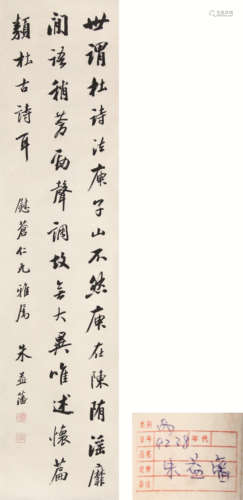 世謂杜詩法庾子山不然庾在陳隋淫靡
間語稍蒼勁聲調故無大異唯述懷篇
類杜古詩耳 慰蒼仁兄雅屬 朱益藩
4228 年代
朱益藩